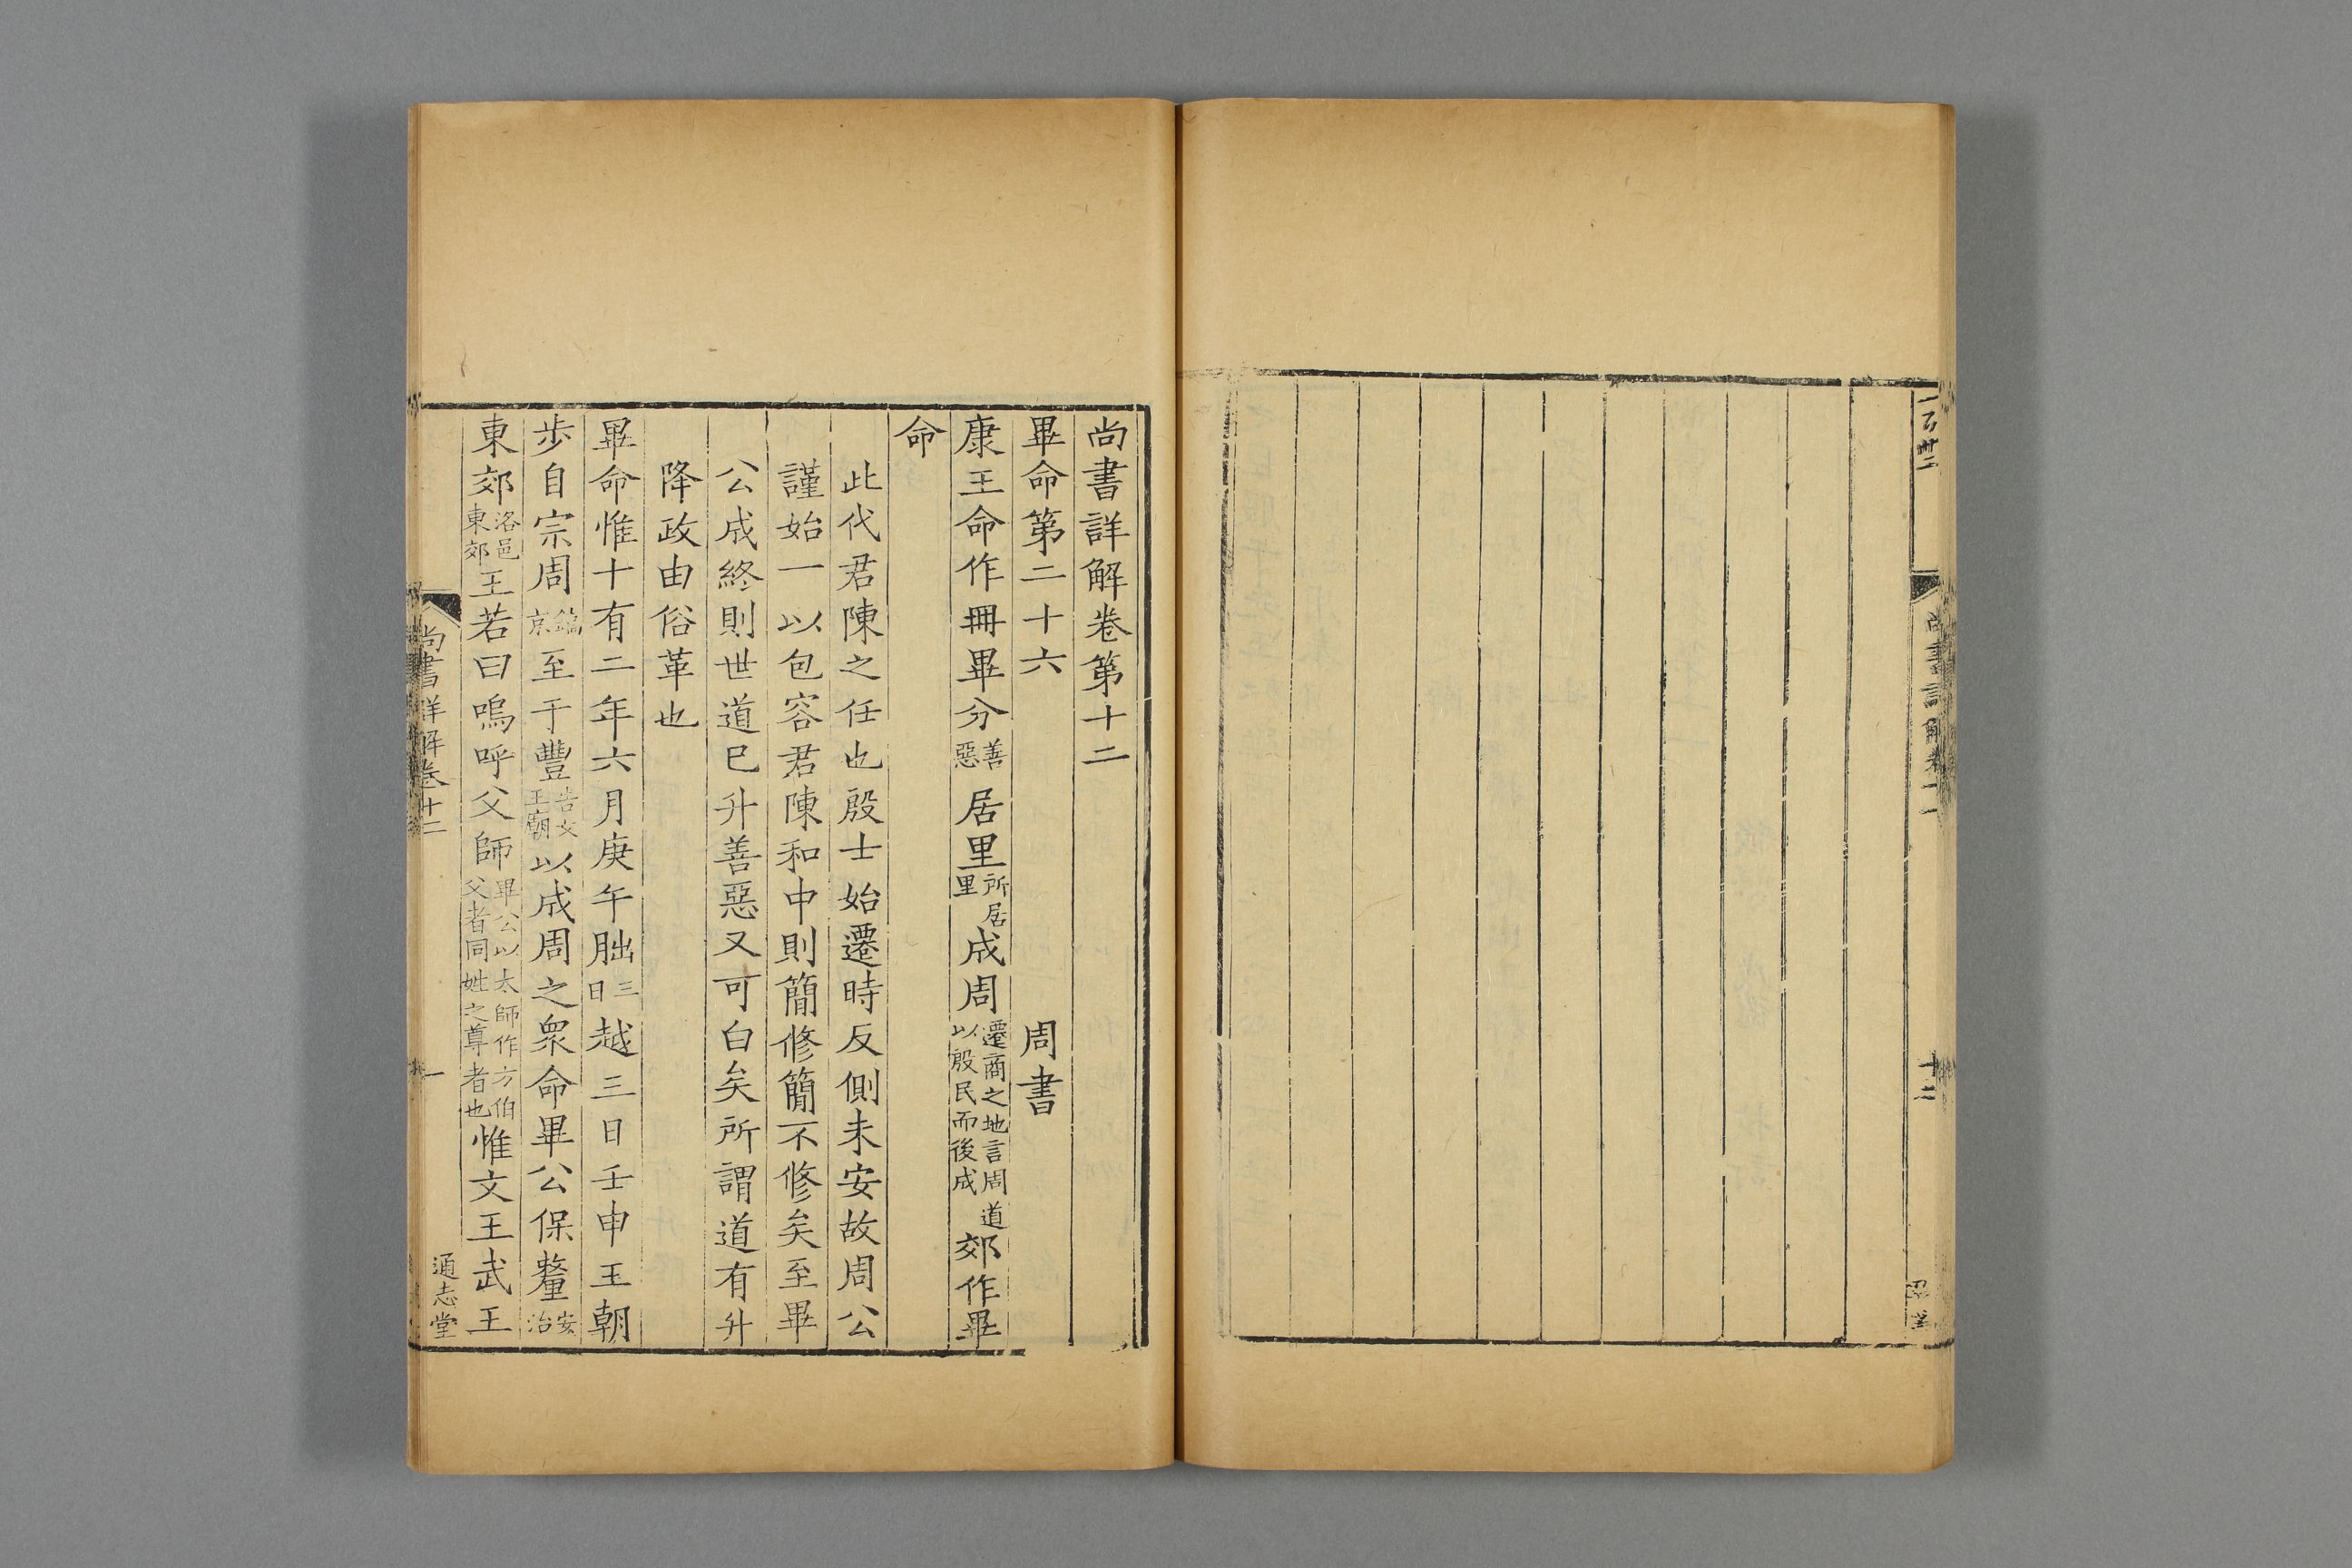 一百卅二
尚書詳解卷十一
十二
尚書詳解卷第十二
畢命第二十六 周書
康王命作冊畢分善惡居里所居里成周遷商之地言周道以殷民而後成郊作畢
命
此代君陳之任也殷士始遷時反側未安故周公
謹始一以包容君陳和中則簡修簡不修矣至畢
公成終則世道已升善惡又可白矣所謂道有升
降政由俗革也
畢命惟十有二年六月庚午朏三日越三日壬申王朝
步自宗周鎬京至于豐告文王廟以成周之衆命畢公保釐安治
東郊洛邑東郊王若曰嗚呼父師畢公以太師作方伯父者同姓之尊者也惟文王武王
尚書詳解卷十二
一
通志堂